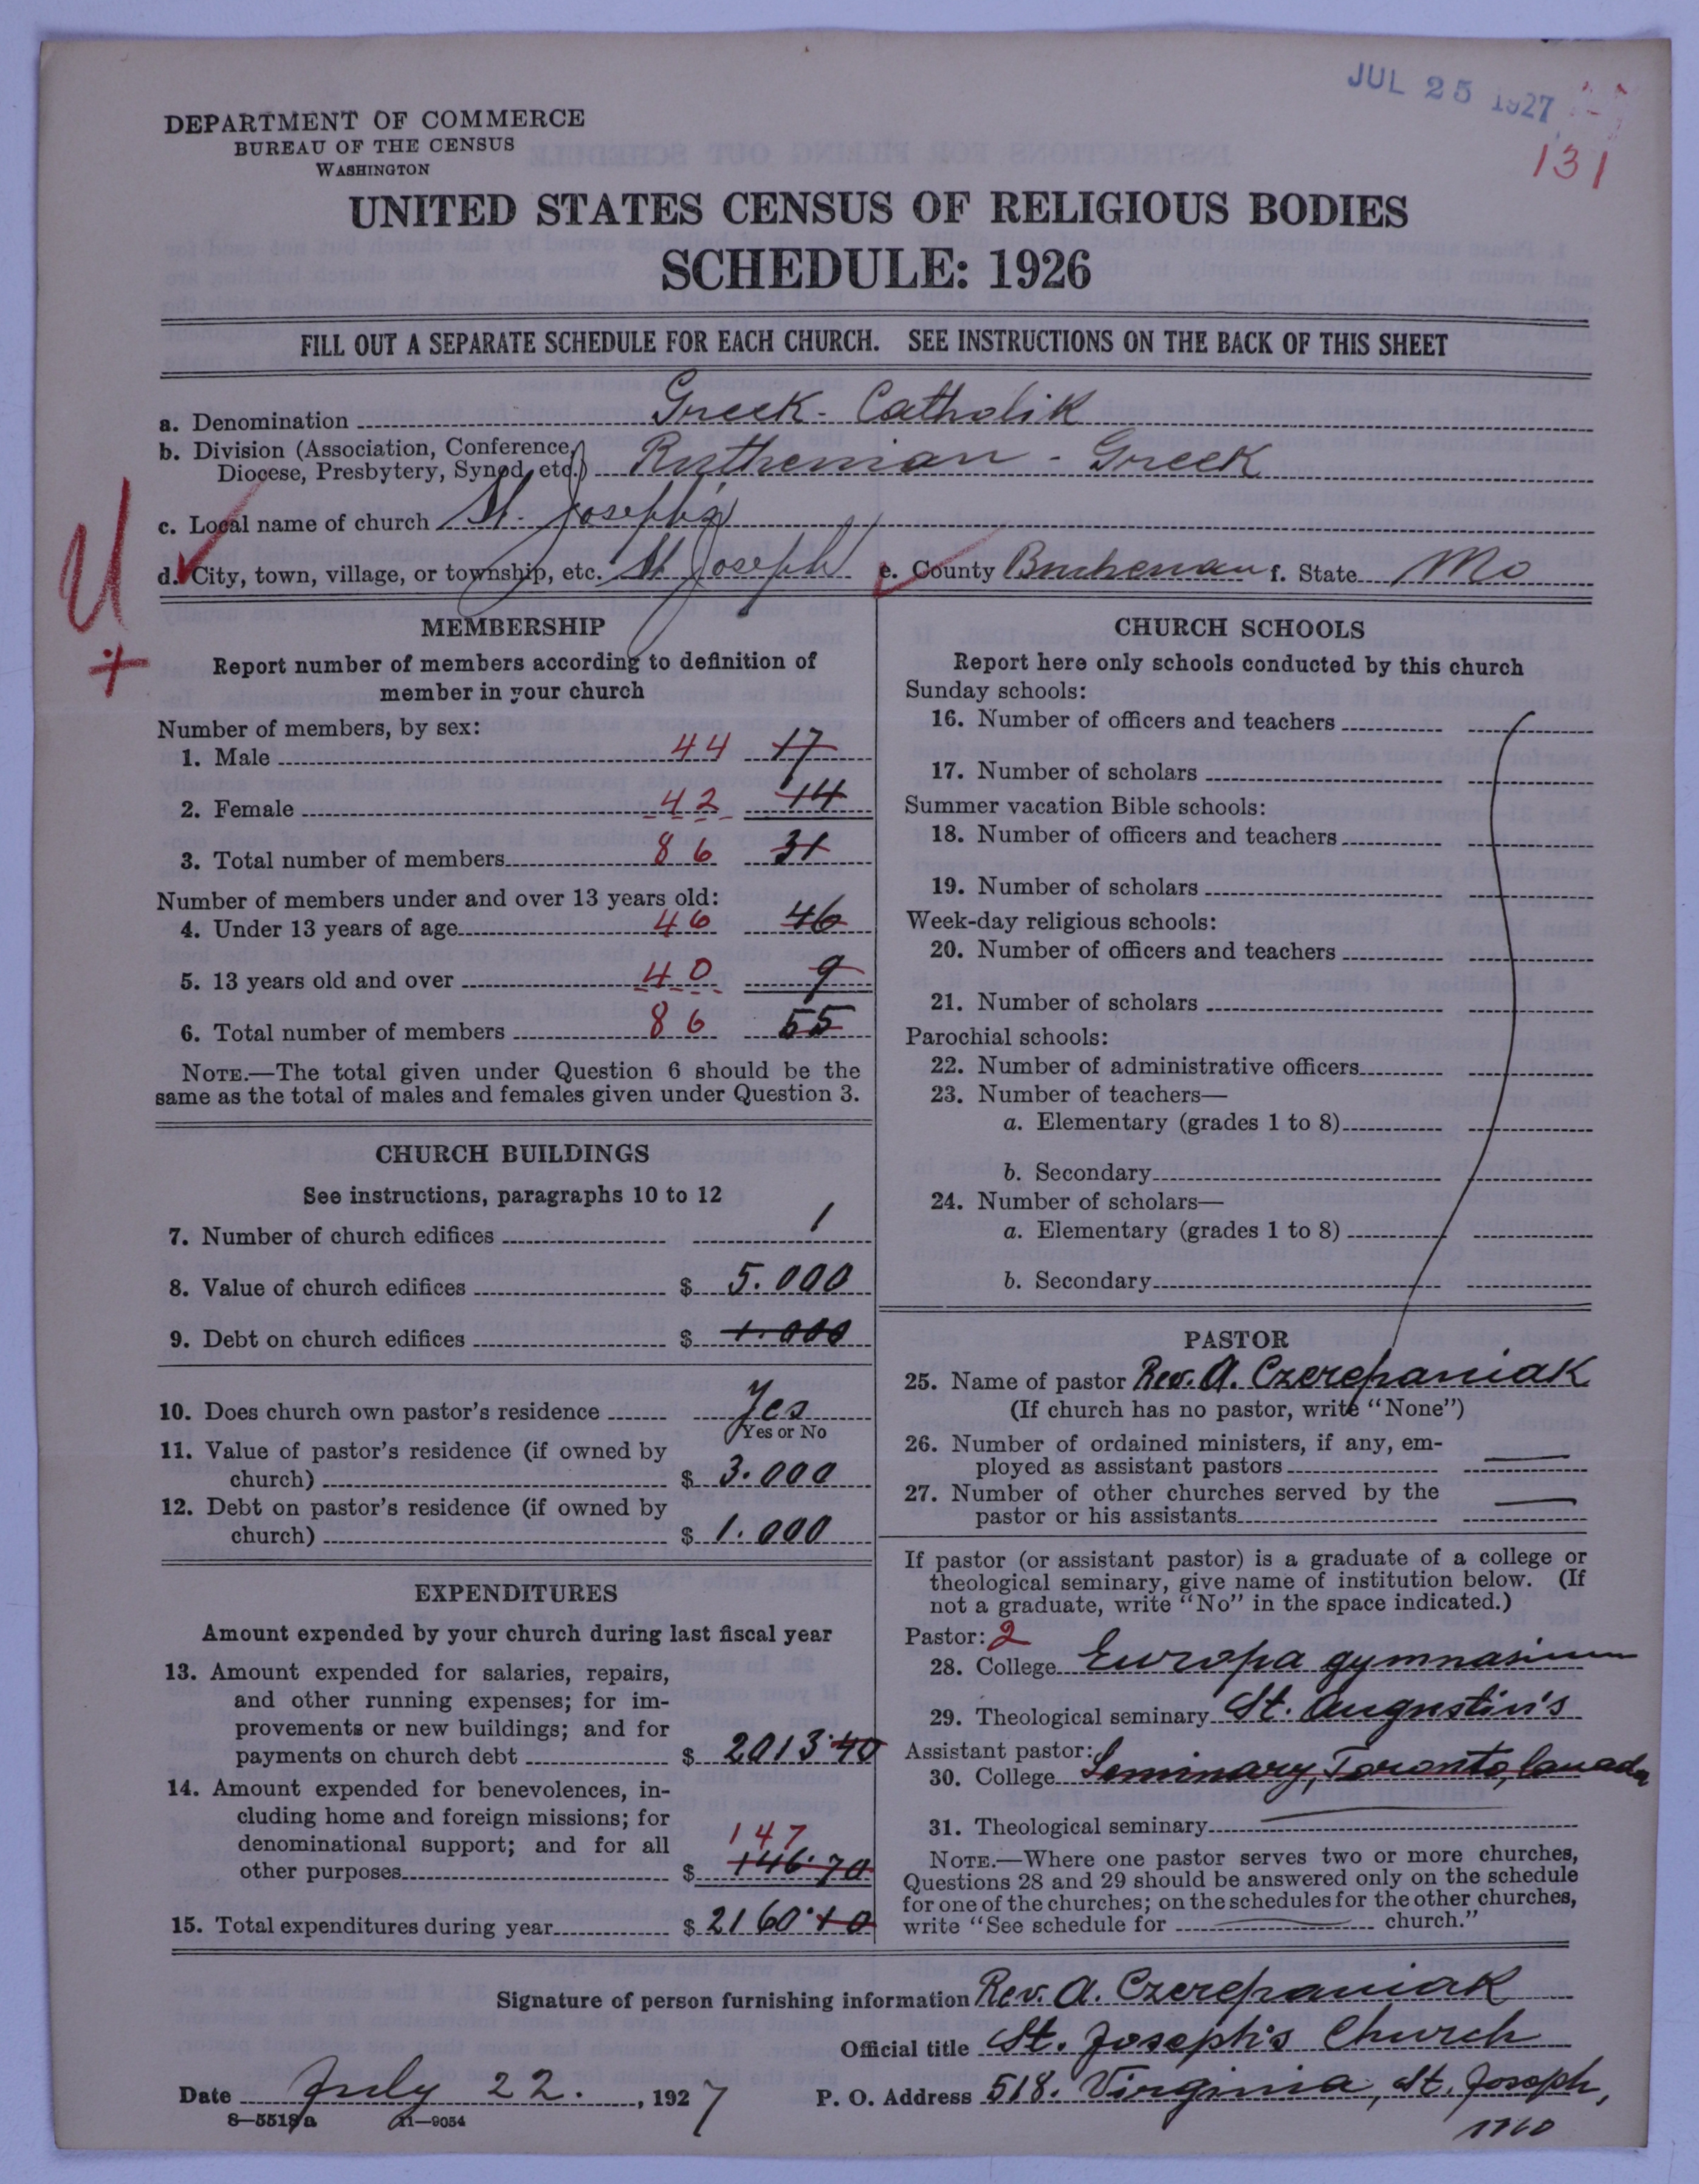 JUL 25 1927
131
DEPARTMENT OF COMMERCE
BUREAU OF THE CENSUS
WASHINGTON
UNITED STATES CENSUS OF RELIGIOUS BODIES
SCHEDULE: 1926
FILL OUT A SEPARATE SCHEDULE FOR EACH CHURCH. SEE INSTRUCTIONS ON THE BACK OF THIS SHEET
a. Denomination Greek-Catholik
b. Division (Association, Conference,
Diocese, Presbytery, Synod, etc.) Ruthenian - Greek
c. Local name of church St. Joseph's
d. City, town, village, or township, etc. St. Joseph e. County Buchenau f. State Mo
MEMBERSHIP
Report number of members according to definition of
member in your church
Number of members, by sex:
1. Male 44 17
2. Female 42 14
3. Total number of members 86 31
Number of members under and over 13 years old:
4. Under 13 years of age 46 46
5. 13 years old and over 40 9
6. Total number of members 86 55
NOTE.—The total given under Question 6 should be the
same as the total of males and females given under Question 3.
CHURCH BUILDINGS
See instructions, paragraphs 10 to 12
7. Number of church edifices 1
8. Value of church edifices $ 5.000
9. Debt on church edifices $ 1.000
10. Does church own pastor's residence Yes
Yes or No
11. Value of pastor's residence (if owned by
church) $ 3.000
12. Debt on pastor's residence (if owned by
church) $ 1.000
EXPENDITURES
Amount expended by your church during last fiscal year
13. Amount expended for salaries, repairs,
and other running expenses; for im-
provements or new buildings; and for
payments on church debt $ 2013.40
14. Amount expended for benevolences, in-
cluding home and foreign missions; for
denominational support; and for all
147
other purposes $ 146.70
15. Total expenditures during year $ 2160.10
CHURCH SCHOOLS
Report here only schools conducted by this church
Sunday schools:
16. Number of officers and teachers
17. Number of scholars
Summer vacation Bible schools:
18. Number of officers and teachers
19. Number of scholars
Week-day religious schools:
20. Number of officers and teachers
21. Number of scholars
Parochial schools:
22. Number of administrative officers
23. Number of teachers—
a. Elementary (grades 1 to 8)
b. Secondary
24. Number of scholars—
a. Elementary (grades 1 to 8)
b. Secondary
PASTOR
25. Name of pastor Rev. A. Czerepaniak
(If church has no pastor, write "None")
26. Number of ordained ministers, if any, em-
ployed as assistant pastors —
27. Number of other churches served by the
pastor or his assistants —
If pastor (or assistant pastor) is a graduate of a college or
theological seminary, give name of institution below. (If
not a graduate, write "No" in the space indicated.)
Pastor: 2
28. College Europa gymnasium
29. Theological seminary St. Augustin's
Assistant pastor:
30. College Seminary, Toronto, Canada
31. Theological seminary —
NOTE.—Where one pastor serves two or more churches,
Questions 28 and 29 should be answered only on the schedule
for one of the churches; on the schedules for the other churches,
write "See schedule for — church."
Signature of person furnishing information Rev. A. Czerepaniak
Official title St. Joseph's Church
Date July 22. , 1927 P. O. Address 518. Virginia, St. Joseph,
Mo
8—5518a 11—9054